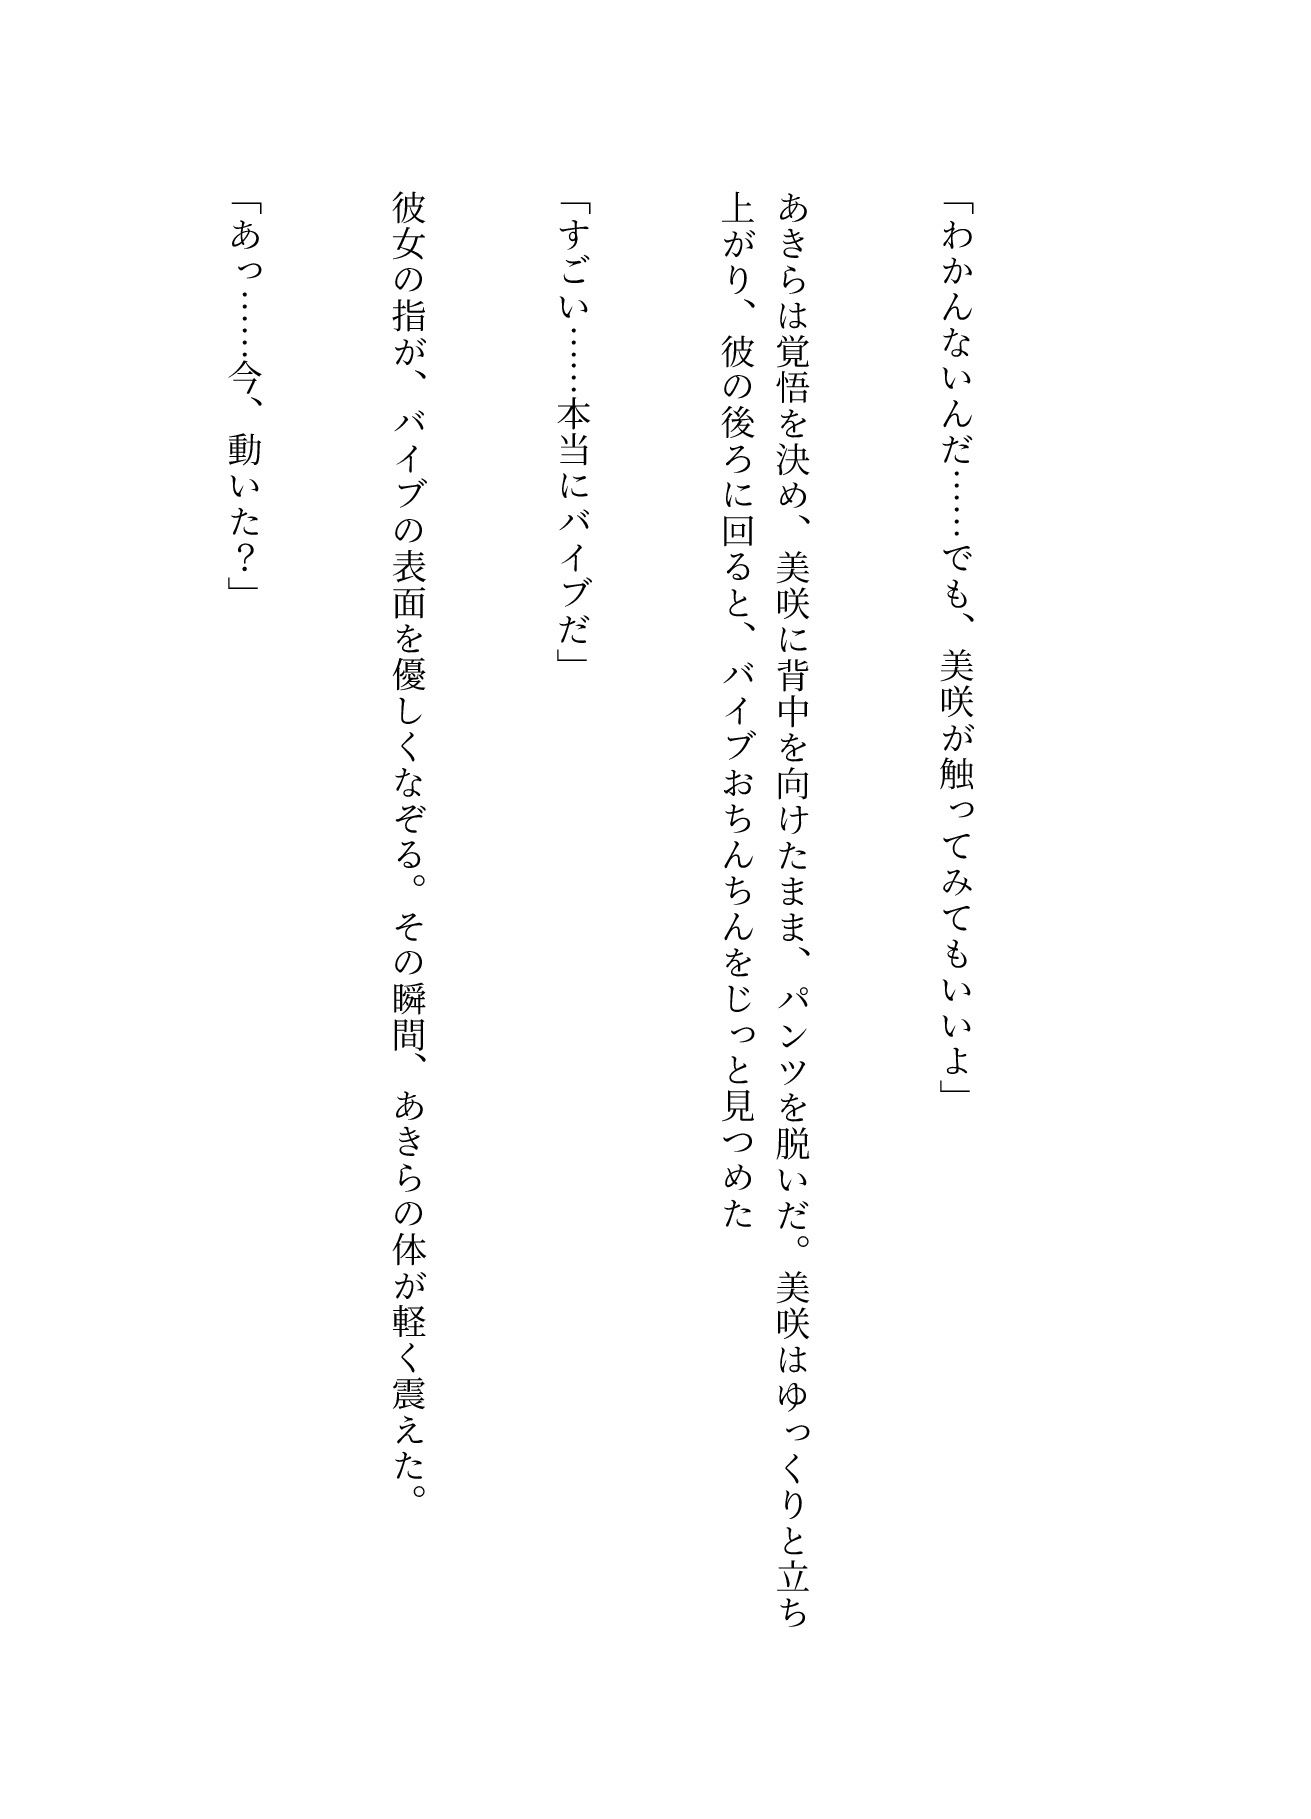 「わかんないんだ……でも、美咲が触ってみてもいいよ」
あきらは覚悟を決め、美咲に背中を向けたまま、パンツを脱いだ。美咲はゆっくりと立ち
上がり、彼の後ろに回ると、バイブおちんちんをじっと見つめた
「すごい……本当にバイブだ」
彼女の指が、バイブの表面を優しくなぞる。その瞬間、あきらの体が軽く震えた。
「あっ……今、動いた？」